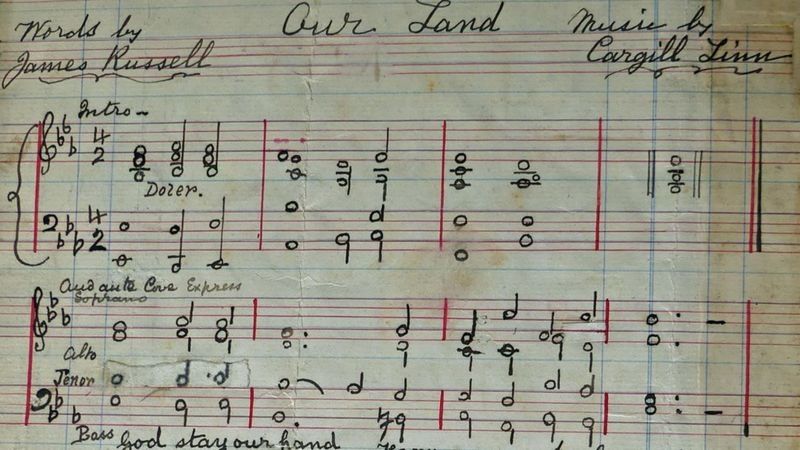 Words by
James Russell
Our Land
Music by
Cargill Linn
Intro
4
2
Dolcr.
4
2
Andante Con Express
Soprano
Alto
Tenor
Bass God stay our hand